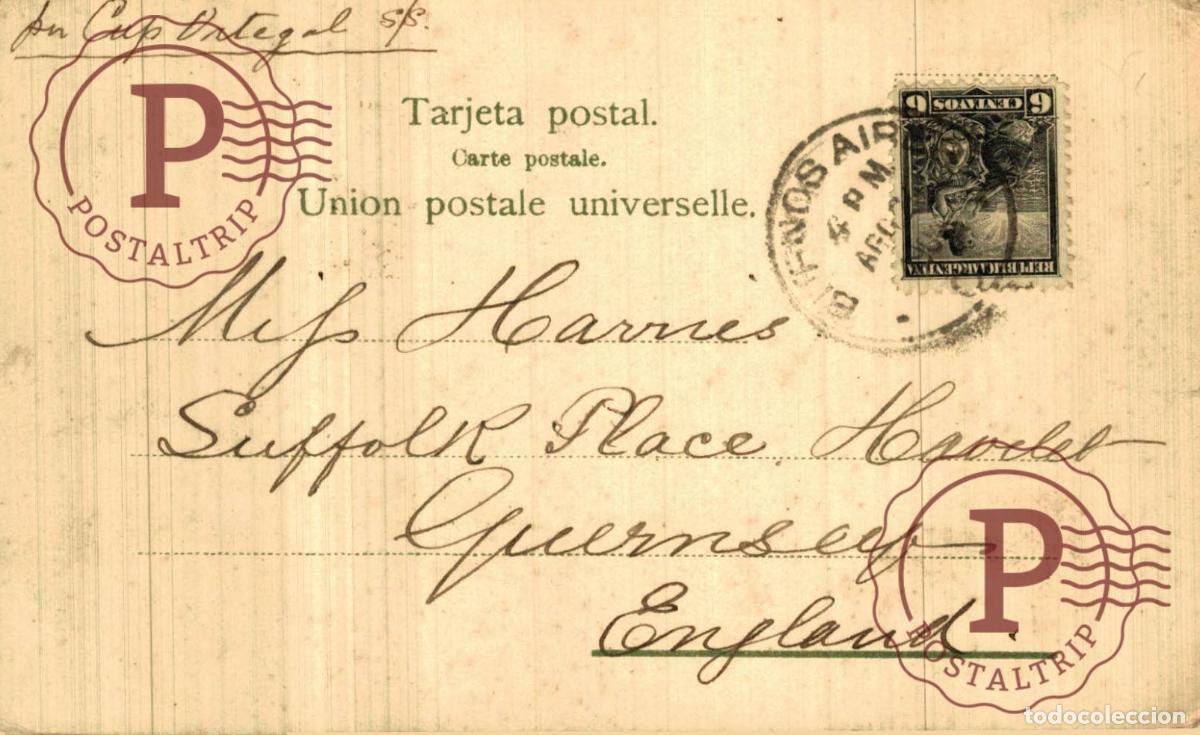 per Cap Ortegal S/S.
Tarjeta postal.
Carte postale.
Union postale universelle.
6 CENTAVOS 6
REPUBLICA ARGENTINA
BUENOS AIRES
4 PM
AGO
Miss Harnes
Suffolk Place
Guernsey
England.
P
POSTALTRIP
P
POSTALTRIP
todocoleccion